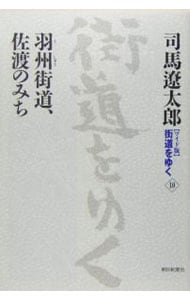 司馬遼太郎
[ワイド版]
街道をゆく
10
羽州街道、
佐渡のみち
街道をゆく
朝日新聞社